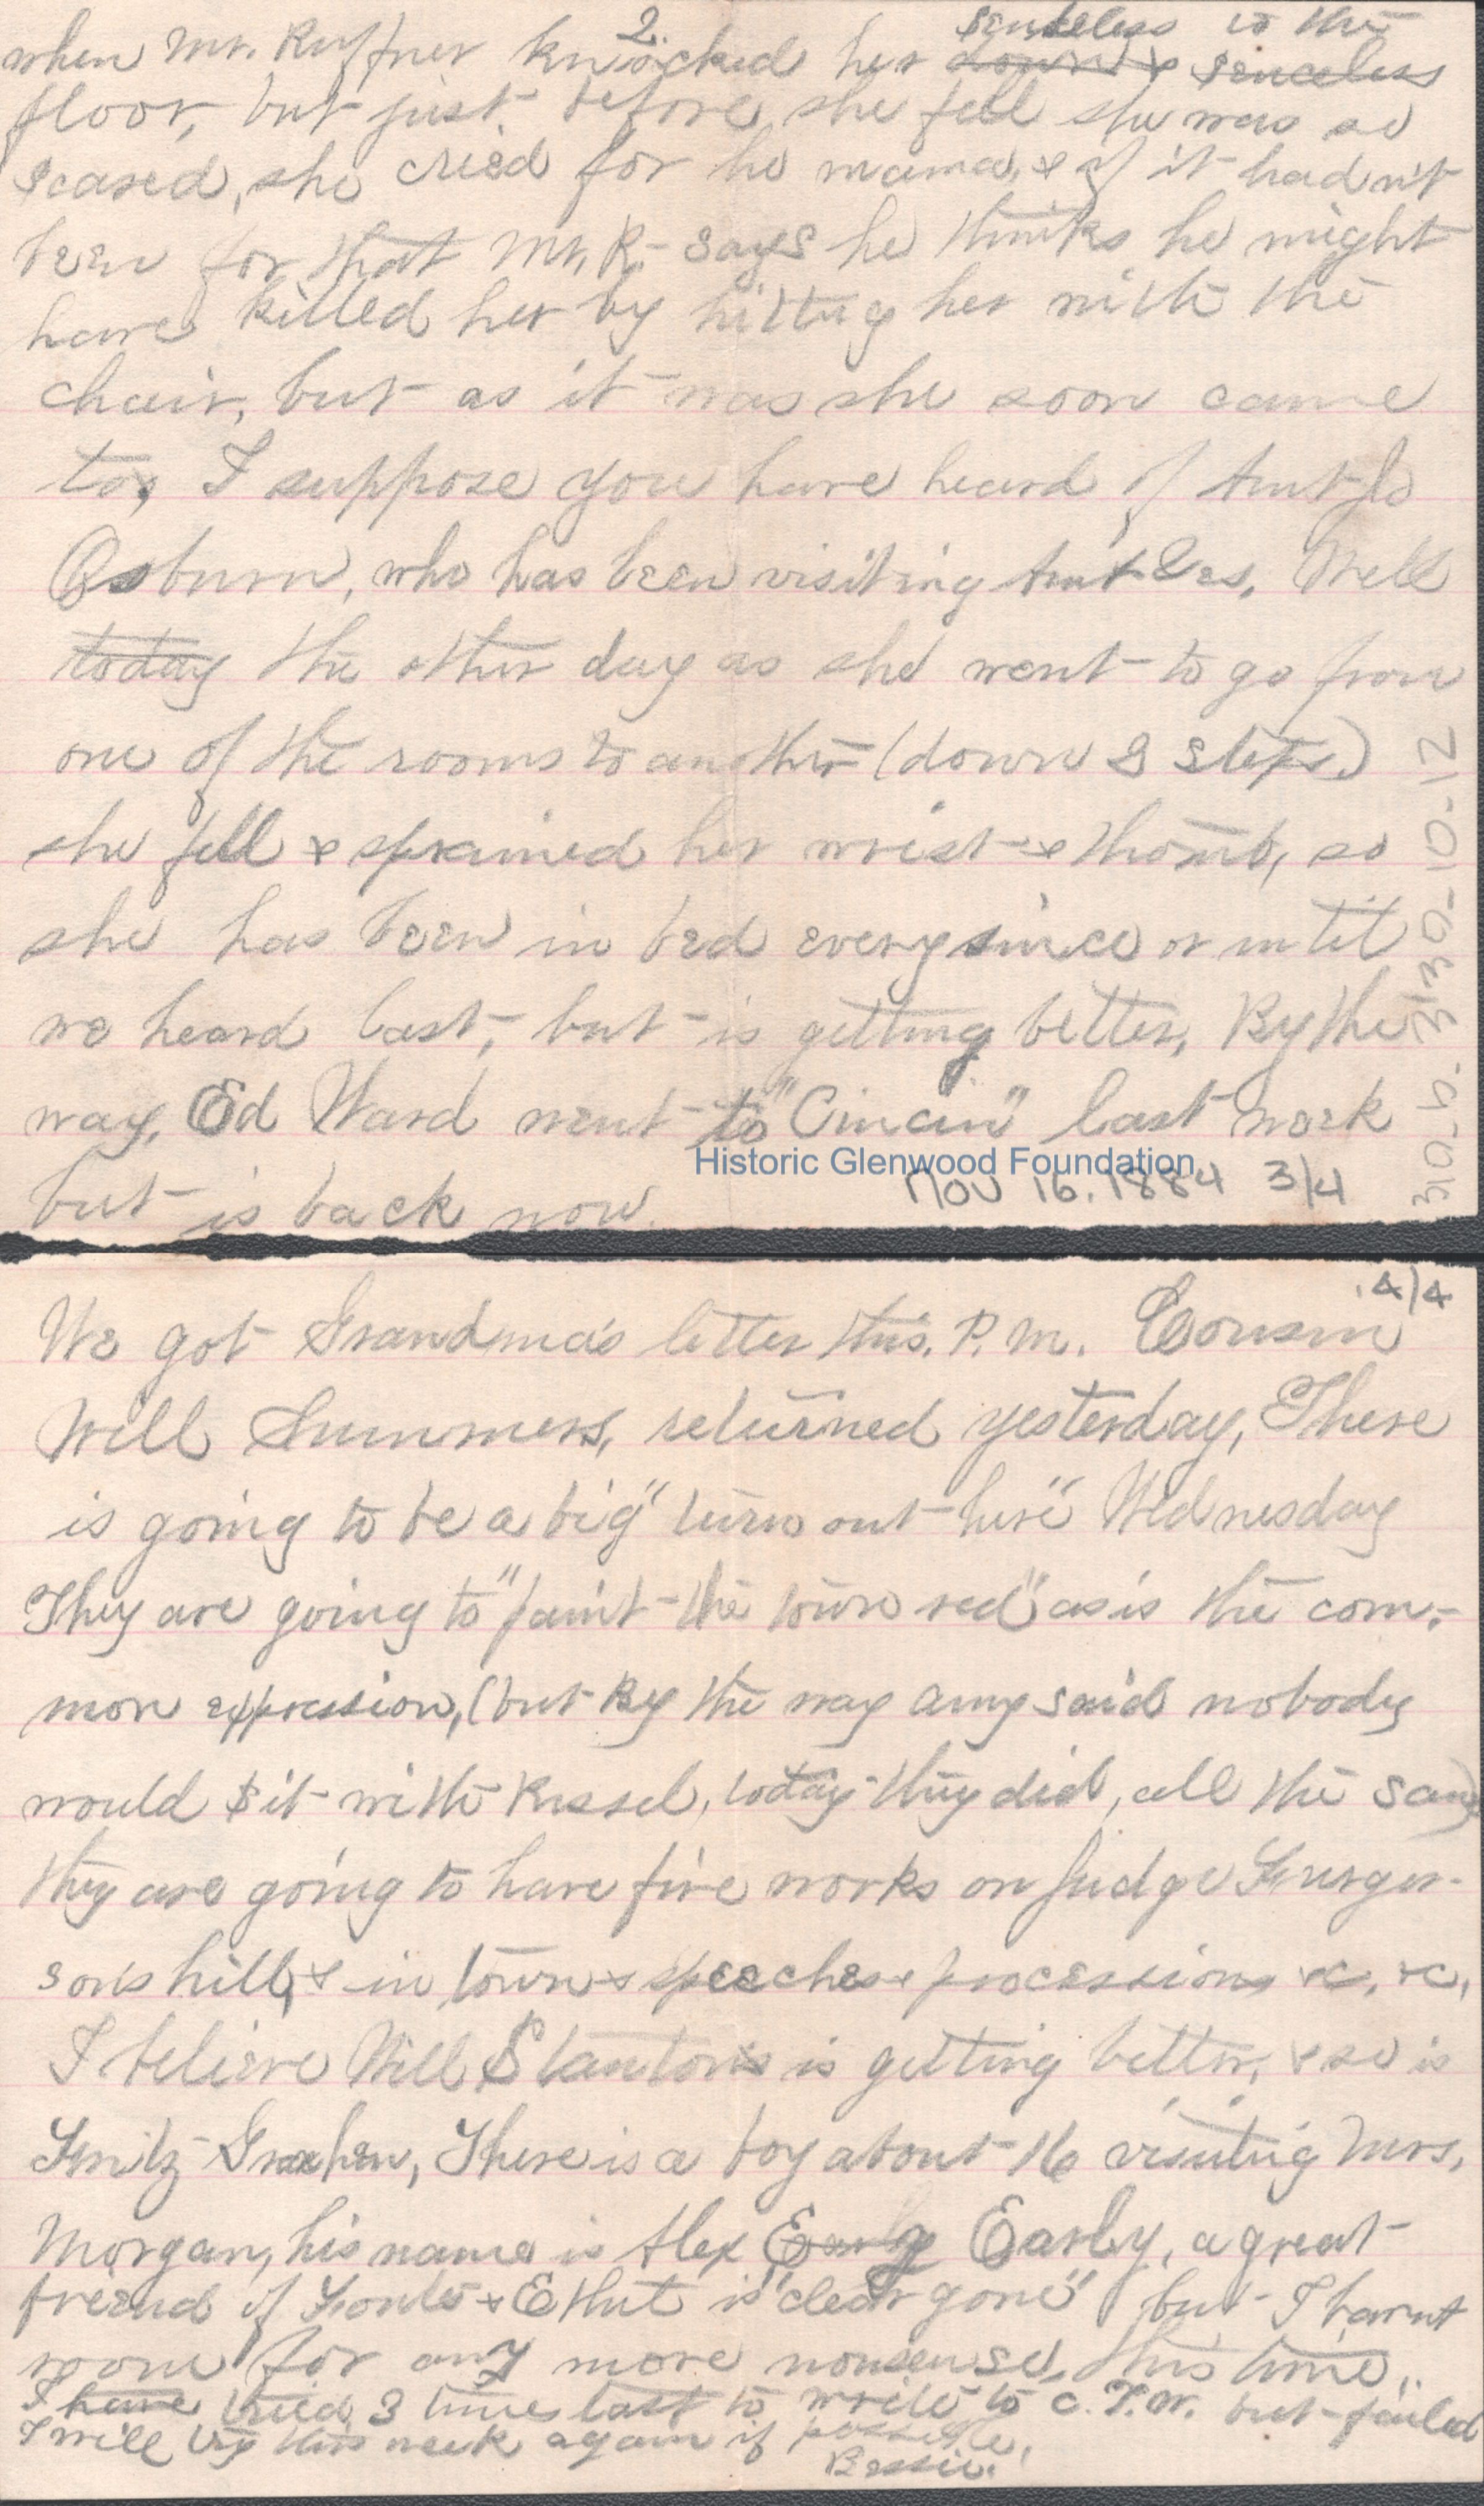 2.
senseless to the
when Mr. Ruffner knocked her down & senceless
floor, but just before she fell she was so
scared, she cried for he mama, & if it hadn't
been for that Mr. R- says he thinks he might
have killed her by hitting her with the
chair, but as it was she soon came
to, I suppose you have heard of Aunt Jo
Osburn, who has been visiting Aunt Les. Well
today the other day as she went to go from
one of the rooms to another (down 2 steps.)
she fell & sprained her wrist & thomb, so
she has been in bed every since or until
we heard last, but is getting better, By the
way, Ed Ward went to "Cincin" last week
but is back now.
Historic Glenwood Foundation
Nov 16. 1884 3/4
310-5-3130-10-12
4/4
We got Grandma's letter this. P.M. Cousin
Will Summers, returned yesterday, There
is going to be a big "turn out here" Wednesday
They are going to "paint the town red" as is the com-
mon expression, (but By the way Amy said nobody
would sit with Russel, today they did, all the same)
they are going to have fire works on Judge Furger-
sons hill, & in town & speeches & processions &c, &c,
I believe Will Stanton is getting better, & so is
There is a boy about 16 visiting Mrs,
Morgan, his name is Alex Early Early, a great
freind of & is "clear gone" but I havnt
room for any more nonsense, this time.
I have tried 3 times last to write to C.T.W. but failed
I will try this week again if possible,
Bessie.